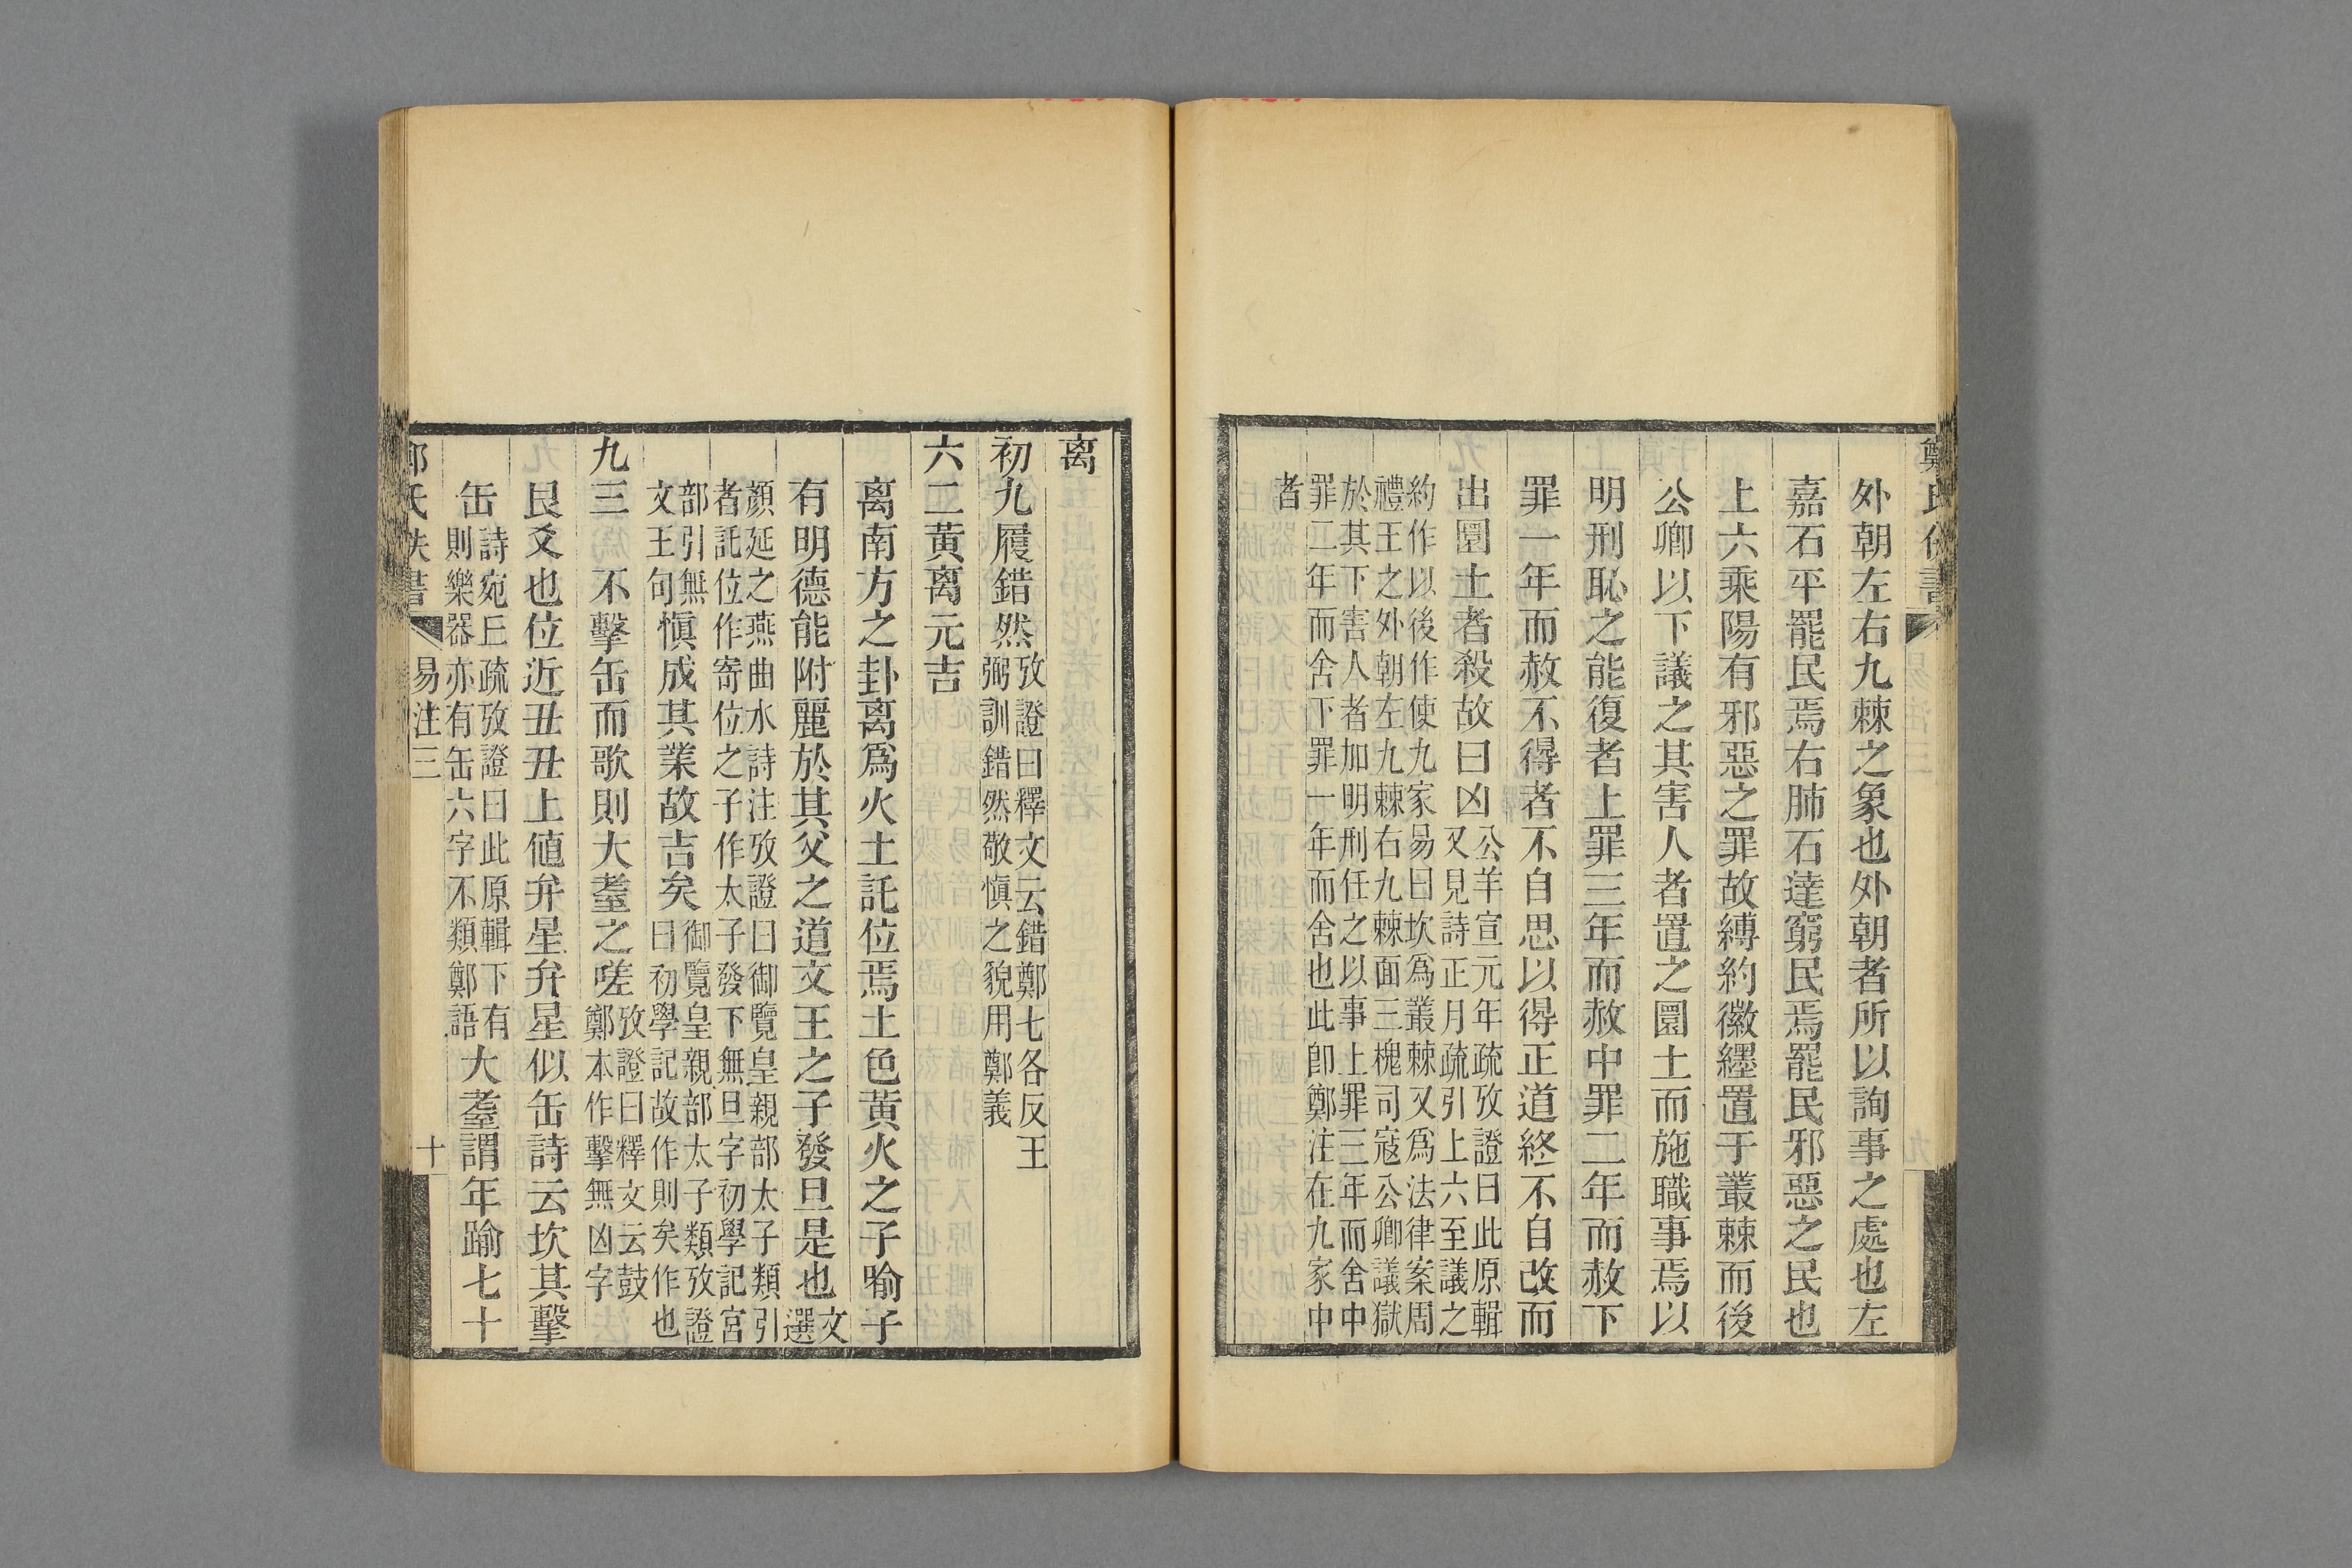 外朝左右九棘之象也外朝者所以詢事之處也左
嘉石平罷民焉右肺石達窮民焉罷民邪惡之民也
上六乘陽有邪惡之罪故縛約徽纆置于叢棘而後
公卿以下議之其害人者置之圜土而施職事焉以
明刑恥之能復者上罪三年而赦中罪二年而赦下
罪一年而赦不得者不自思以得正道終不自改而
出圜土者殺故曰凶
公羊宣元年疏攷證曰此原輯
又見詩正月疏引上六至議之
約作以後作使九家易曰坎爲叢棘又爲法律案周
禮王之外朝左九棘右九棘面三槐司寇公卿議獄
於其下害人者加明刑任之以事上罪三年而舍中
罪二年而舍下罪一年而舍也此卽鄭注在九家中
者
离
初九履錯然
攷證曰釋文云錯鄭七各反王
弼訓錯然敬愼之貌用鄭義
六二黃离元吉
离南方之卦离爲火土託位焉土色黃火之子喻子
有明德能附麗於其父之道文王之子發旦是也
文
選
顏延之燕曲水詩注攷證曰御覽皇親部太子類引
者託位作寄位之子作太子發下無旦字初學記宮
部引無
文王句
愼成其業故吉矣
御覽皇親部太子類攷證
曰初學記故作則矣作也
九三 不擊缶而歌則大耋之嗟
攷證曰釋文云鼓
鄭本作擊無凶字
艮爻也位近丑丑上値弁星弁星似缶詩云坎其擊
缶
詩宛丘疏攷證曰此原輯下有
則樂器亦有缶六字不類鄭語
大耋謂年踰七十
氏佚書
易注三
十